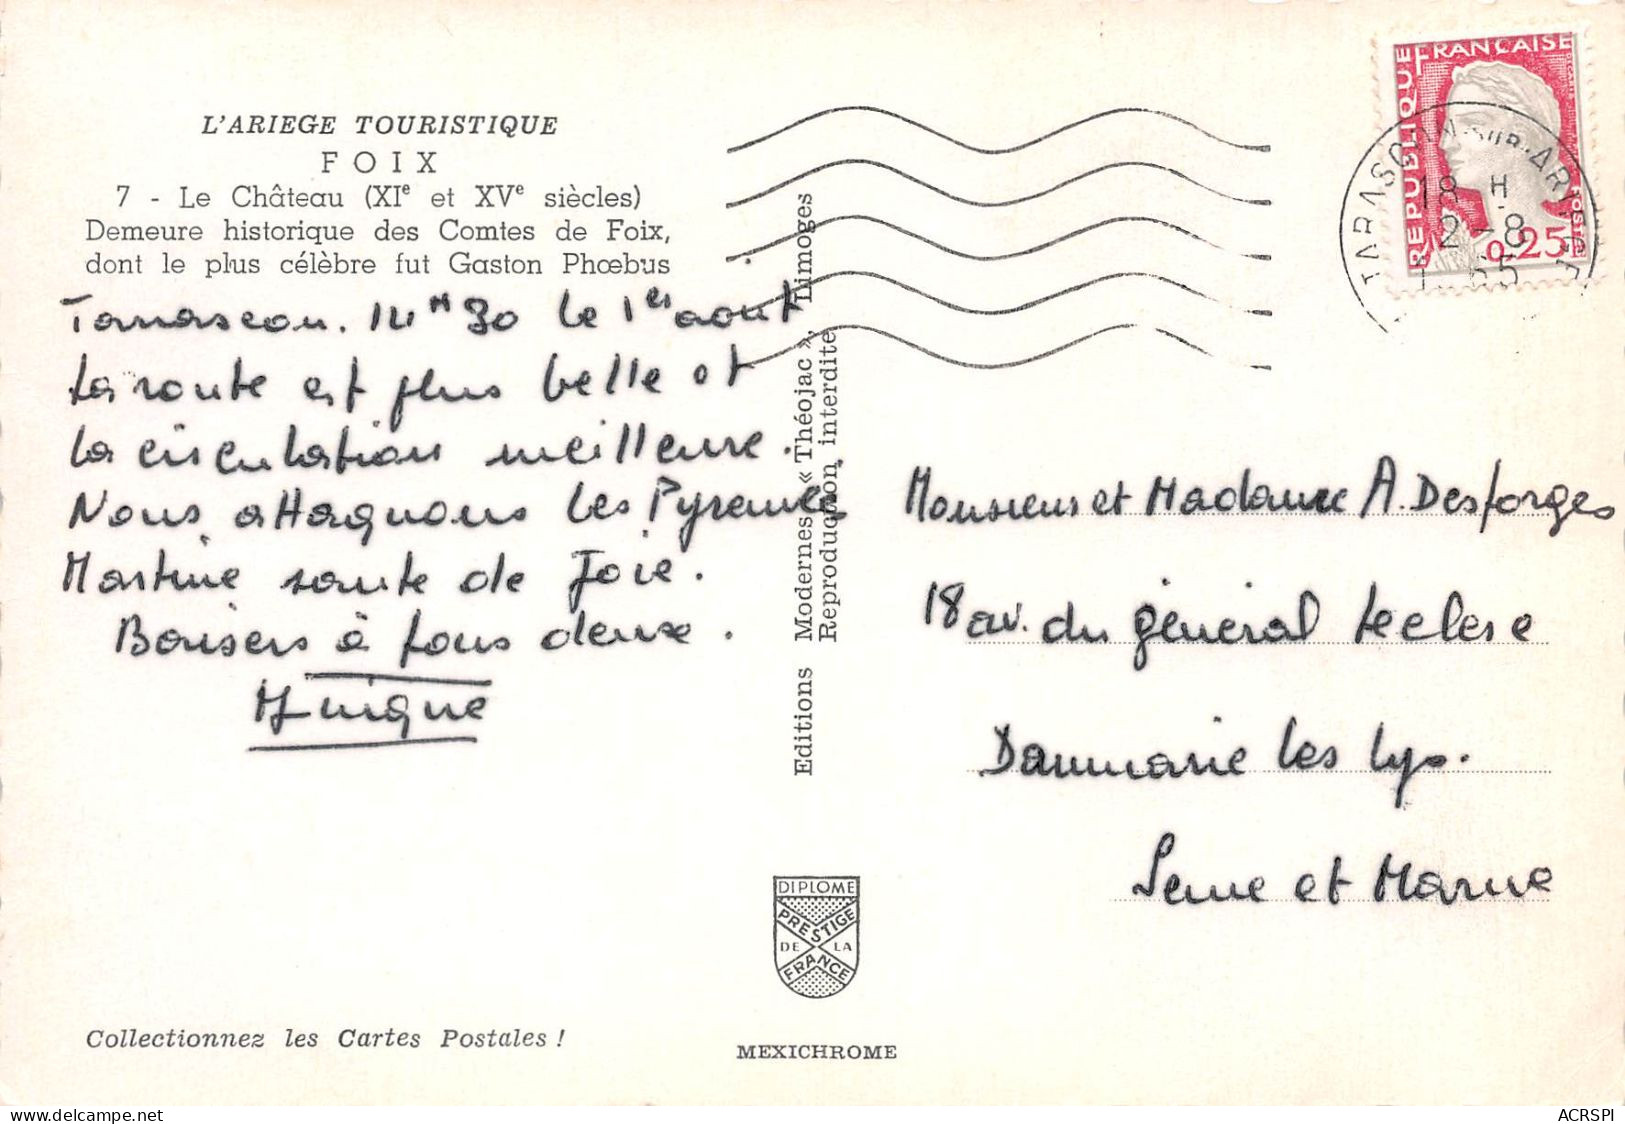 L'ARIEGE TOURISTIQUE
FOIX
7 - Le Château (XIe et XVe siècles)
Demeure historique des Comtes de Foix,
dont le plus célèbre fut Gaston Phœbus
Tarascon. 14H30 le 1er août
La route est plus belle et
la circulation meilleure.
Nous attaquons les Pyrenées
Martine saute de Joie.
Baisers à tous deux.
Editions Modernes « Théojac », Limoges
Reproduction interdite
REPUBLIQUE FRANÇAISE
POSTES
0,25
TARASCON-SUR-ARIEGE
18 H
2-8
1965
Monsieur et Madame A. Desforges
18 av. du général Leclerc
Dammarie les Lys.
Seine et Marne
DIPLOME
PRESTIGE
DE LA
FRANCE
Collectionnez les Cartes Postales !
MEXICHROME
ACRSPI